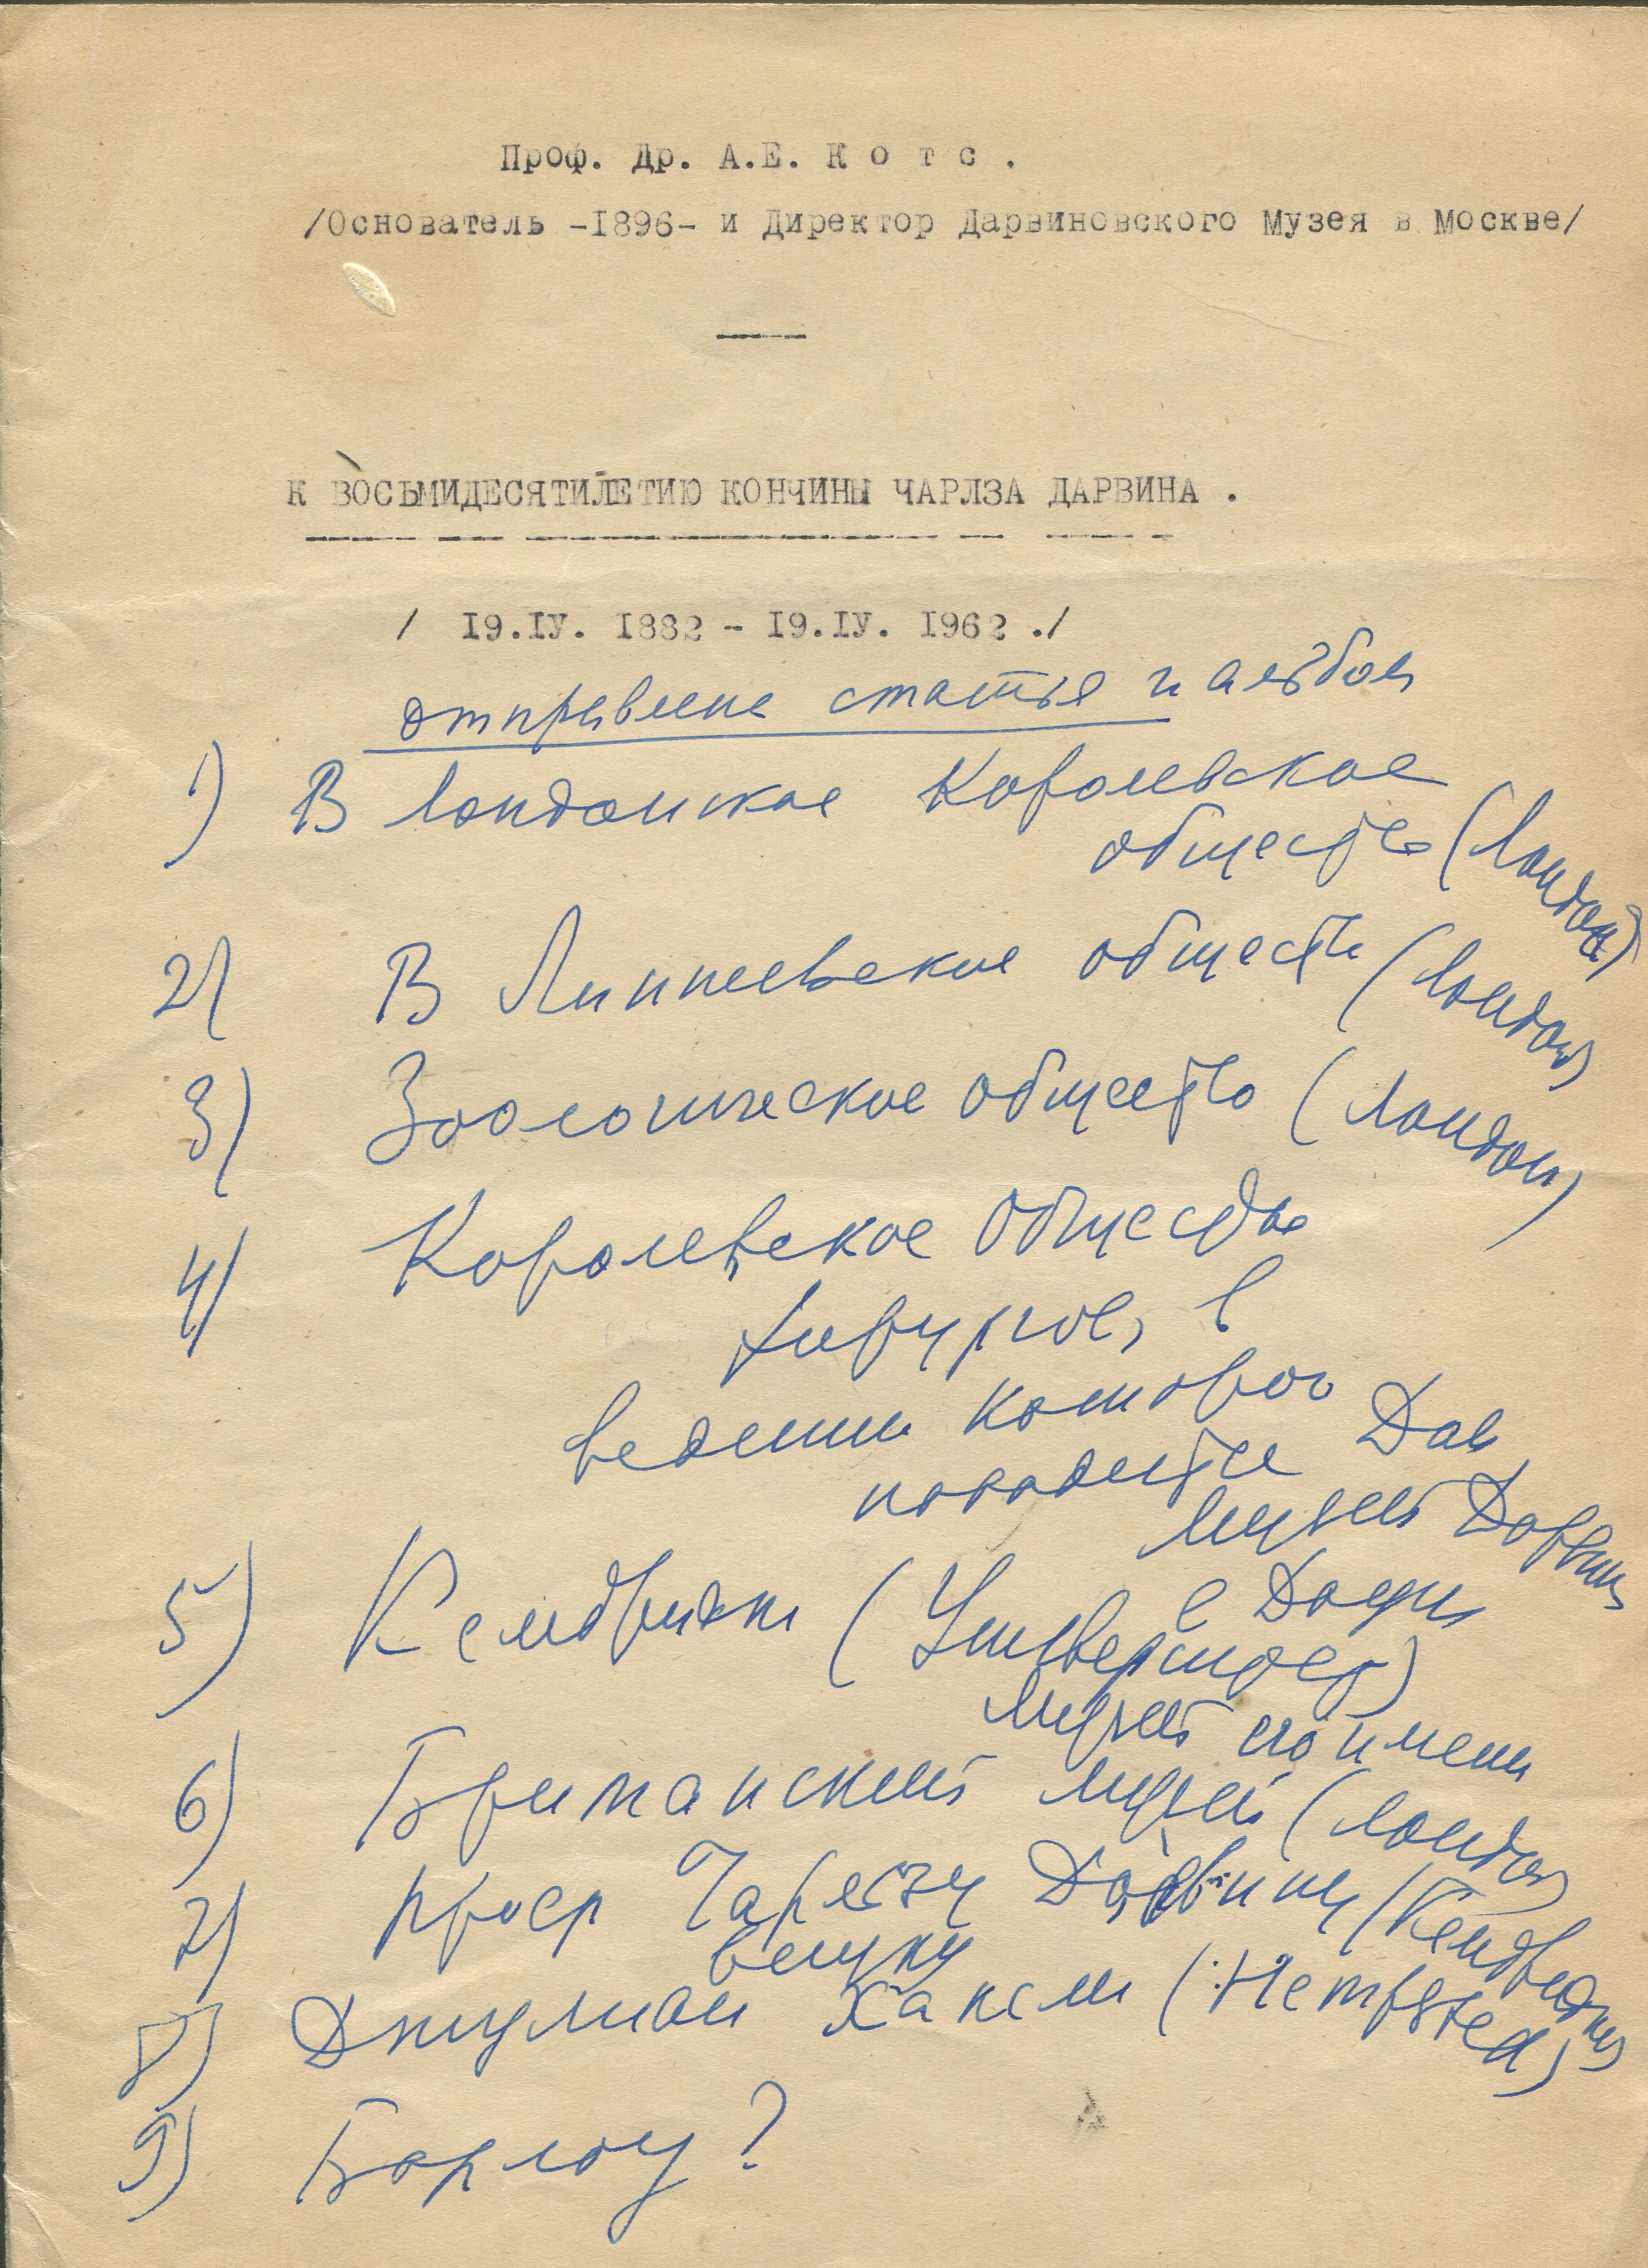 Проф. Др. А.Е. К о т с .
/Основатель -I896- и Директор Дарвиновского Музея в Москве/
К ВОСЬМИДЕСЯТИЛЕТИЮ КОНЧИНЫ ЧАРЛЗА ДАРВИНА .
/ I9.IУ. I882 - I9.IУ. I962 ./
отправлена статья и альбом
1) В Лондонское Королевское
общество (Лондон)
2) В Линнеевское общество (Лондон)
3) Зоологическое общество (Лондон)
4) Королевское общество
хирургов, в
ведении которого
находится Дом
музей Дарвина
в Дауне
5) Кембридж (Университет)
музей его имени
6) Британский музей (Лондон)
7) проф Чарльзу Дарвину (Кембридж)
внуку
8) Джулиан Хаксли (Hempsted)
9) Барлоу ?